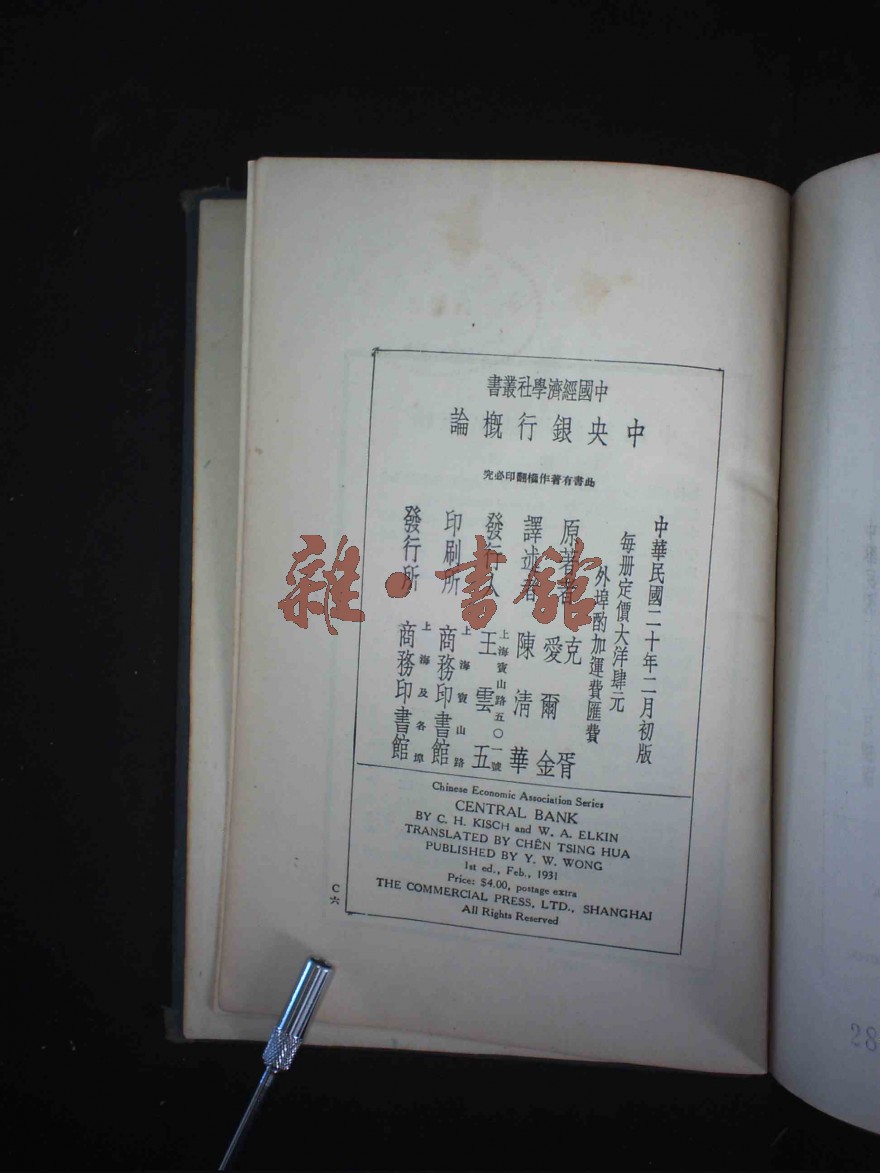 中國經濟學社叢書
中央銀行概論
此書有著作權翻印必究
中華民國二十年二月初版
每册定價大洋肆元
外埠酌加運費匯費
原著者 克胥 愛爾金
譯述者 陳清華
發行人 王雲五
上海寶山路五〇一號
印刷所 商務印書館
上海寶山路
發行所 商務印書館
上海及各埠
Chinese Economic Association Series
CENTRAL BANK
BY C. H. KISCH and W. A. ELKIN
TRANSLATED BY CHÊN TSING HUA
PUBLISHED BY Y. W. WONG
1st ed., Feb., 1931
Price: $4.00, postage extra
THE COMMERCIAL PRESS, LTD., SHANGHAI
All Rights Reserved
C六
雜·書館
28